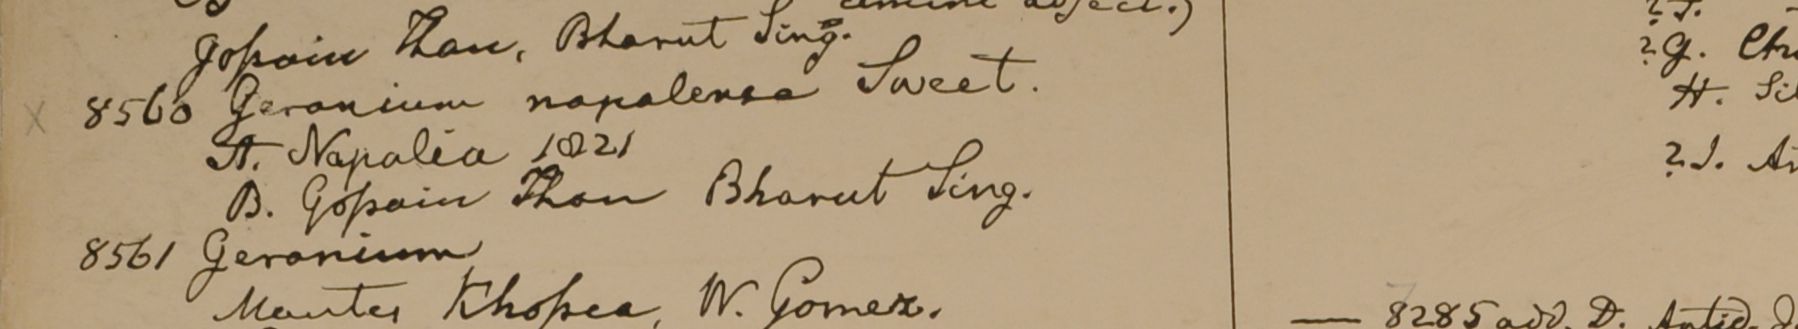 Gopain Than, Bharut Sing.
8560 Geranium napalense Sweet.
A. Napalia 1821
B. Gopain Than Bharut Sing.
8561 Geranium
Montes Khopea, W. Gomez.
? G.
H.
? I.
— 8285 add. D.